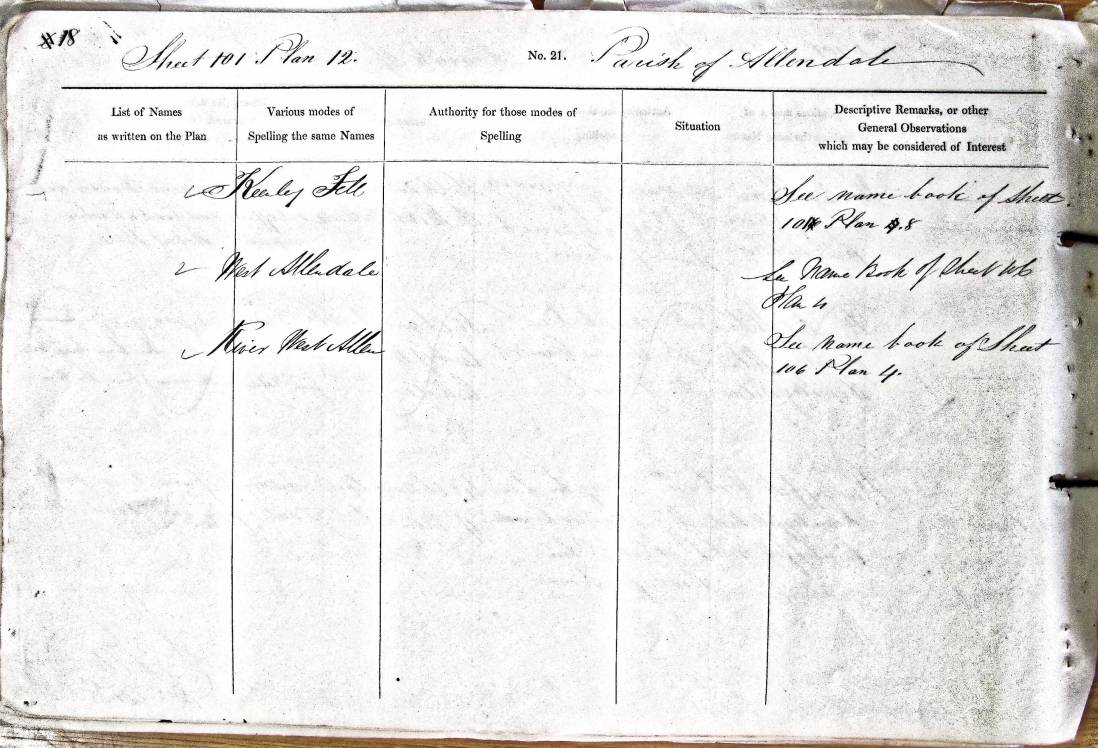 18
Sheet 101 Plan 12. No. 21. Parish of Allendale
List of Names
as written on the Plan
Various modes of
Spelling the same Names
Authority for those modes of
Spelling
Situation
Descriptive Remarks, or other
General Observations
which may be considered of Interest
Keenley Fell
See name book of Sheet
Plan 8
West Allendale
See Name Book of Sheet 106
Plan 4
River West Allen
See name book of Sheet
106 Plan 4.